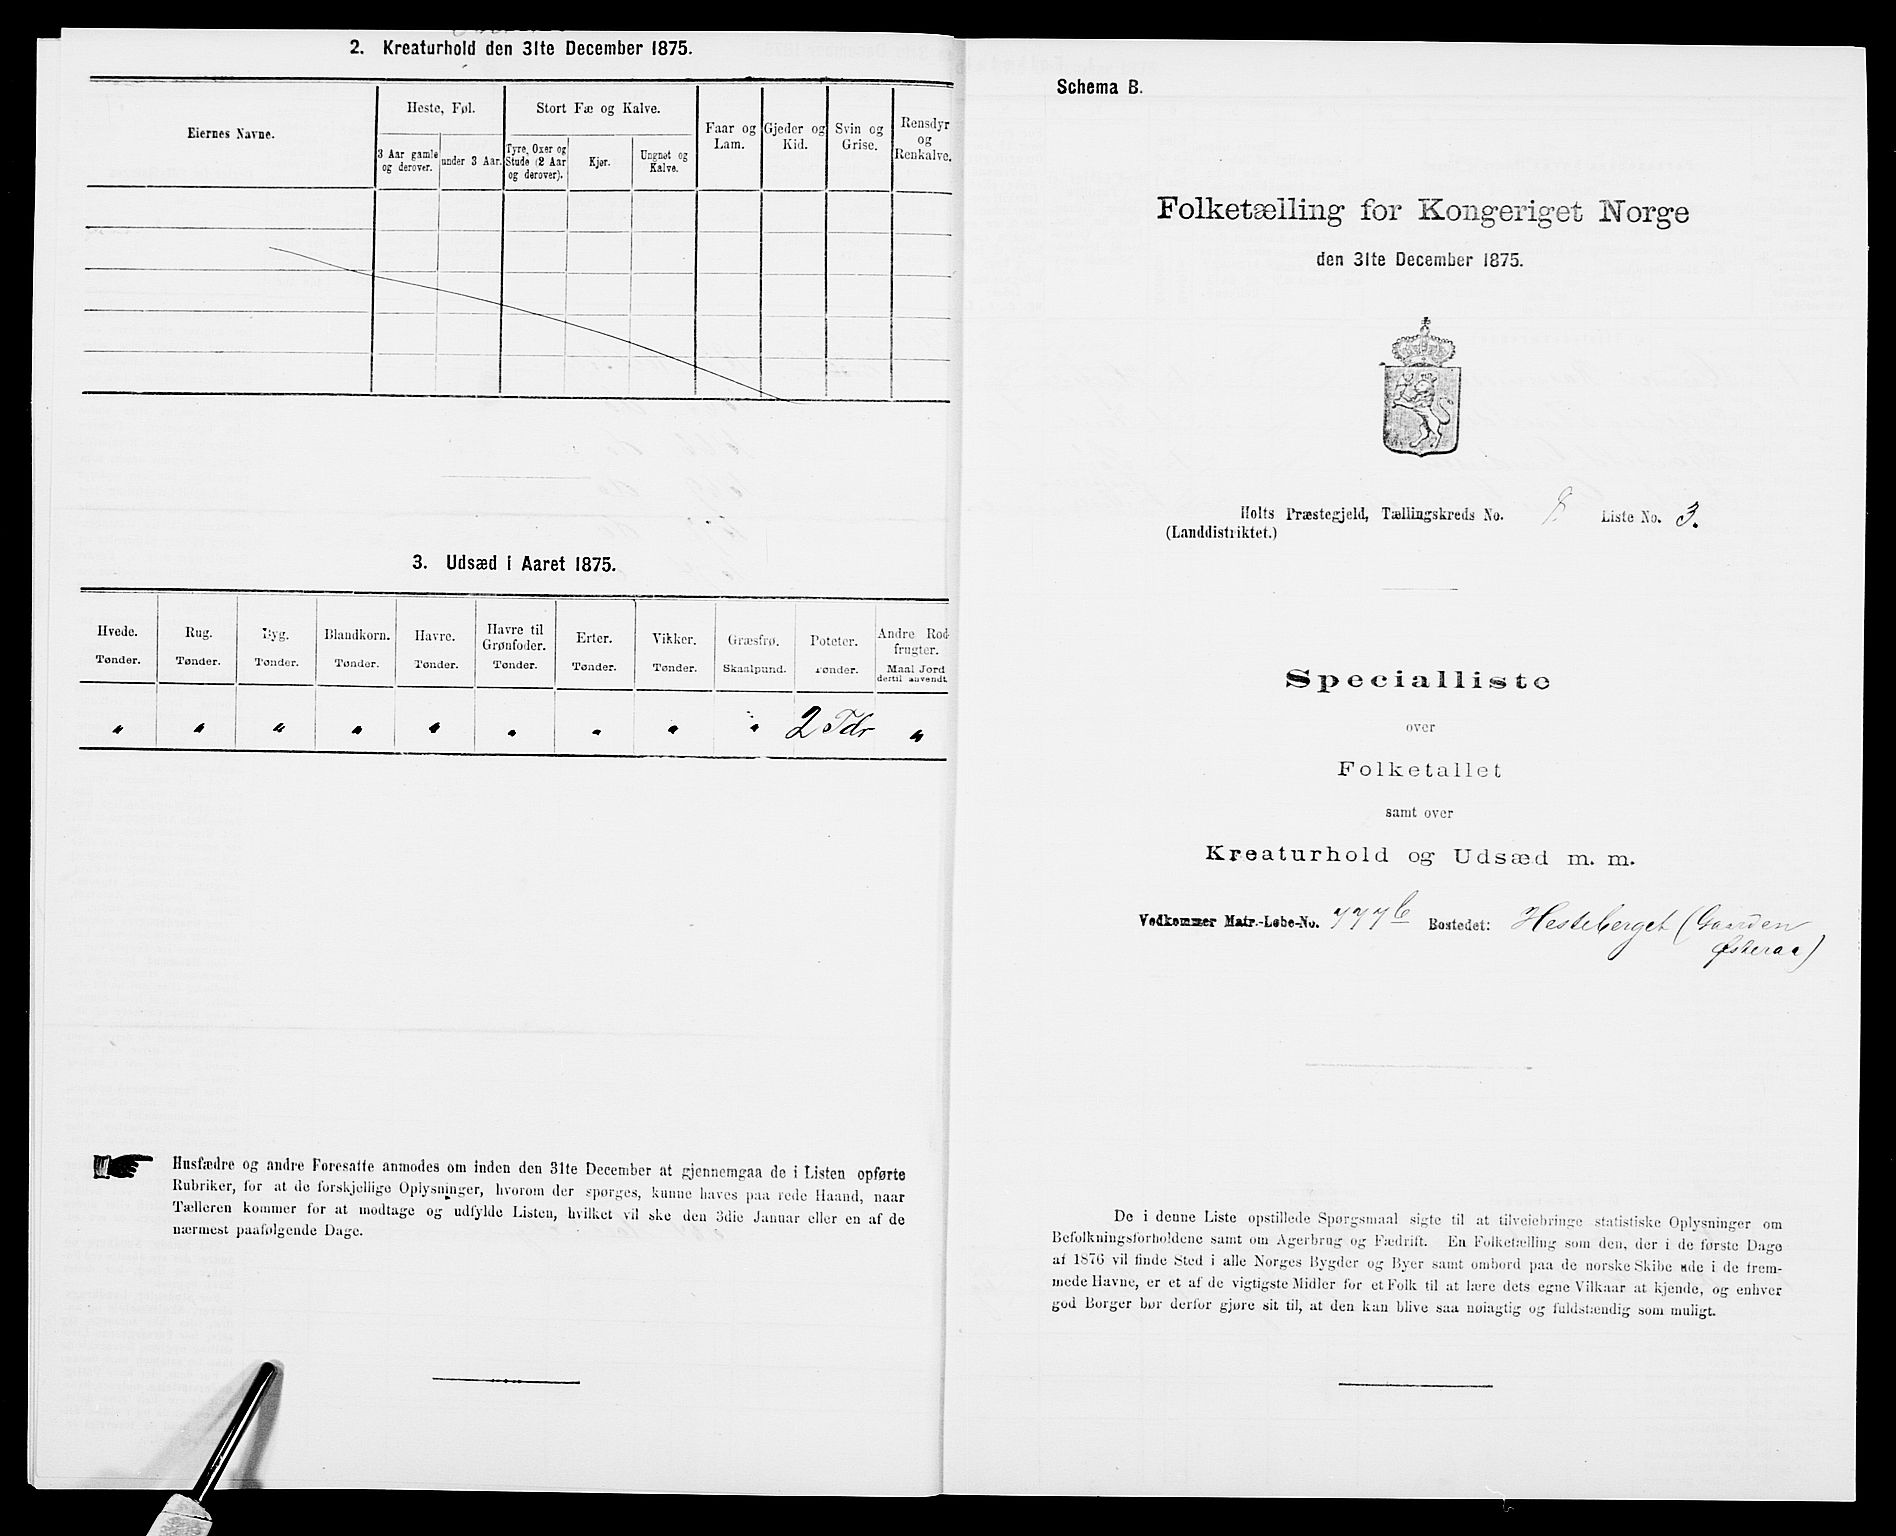 2. Kreaturhold den 31te December 1875.
Eiernes Navne.
Heste, Føl.
3 Aar gamle og derover.
under 3 Aar.
Stort Fæ og Kalve.
Tyre, Oxer og Stude (2 Aar og derover).
Kjør.
Ungnøt og Kalve.
Faar og Lam.
Gjeder og Kid.
Svin og Grise.
Rensdyr og Renkalve.
3. Udsæd i Aaret 1875.
Hvede. Rug. Byg. Blandkorn. Havre. Havre til Grønfoder. Erter. Vikker. Græsfrø. Poteter. Andre Rodfrugter.
Tønder. Tønder. Tønder. Tønder. Tønder. Tønder. Tønder. Tønder. Skaalpund. Tønder. Maal Jord dertil anvendt.
" " " " " " " " " 2 Tdr "
Husfædre og andre Foresatte anmodes om inden den 31te December at gjennemgaa de i Listen opførte
Rubriker, for at de forskjellige Oplysninger, hvorom der spørges, kunne haves paa rede Haand, naar
Tælleren kommer for at modtage og udfylde Listen, hvilket vil ske den 3die Januar eller en af de
nærmest paafølgende Dage.
Schema B.
Folketælling for Kongeriget Norge
den 31te December 1875.
Holts Præstegjeld, Tællingskreds No. Liste No. 3.
(Landdistriktet.)
Specialliste
over
Folketallet
samt over
Kreaturhold og Udsæd m. m.
Vedkommer Matr.-Løbe-No. 777b Bostedet: Hesteberget (Gaarden
Østeraa)
De i denne Liste opstillede Spørgsmaal sigte til at tilveiebringe statistiske Oplysninger om
Befolkningsforholdene samt om Agerbrug og Fædrift. En Folketælling som den, der i de første Dage
af 1876 vil finde Sted i alle Norges Bygder og Byer samt ombord paa de norske Skibe ude i de frem-
mede Havne, er et af de vigtigste Midler for et Folk til at lære dets egne Vilkaar at kjende, og enhver
god Borger bør derfor gjøre sit til, at den kan blive saa nøiagtig og fuldstændig som muligt.